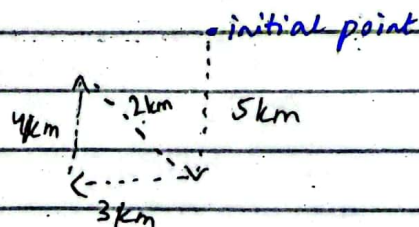 initial point
2km
4km
5km
3km